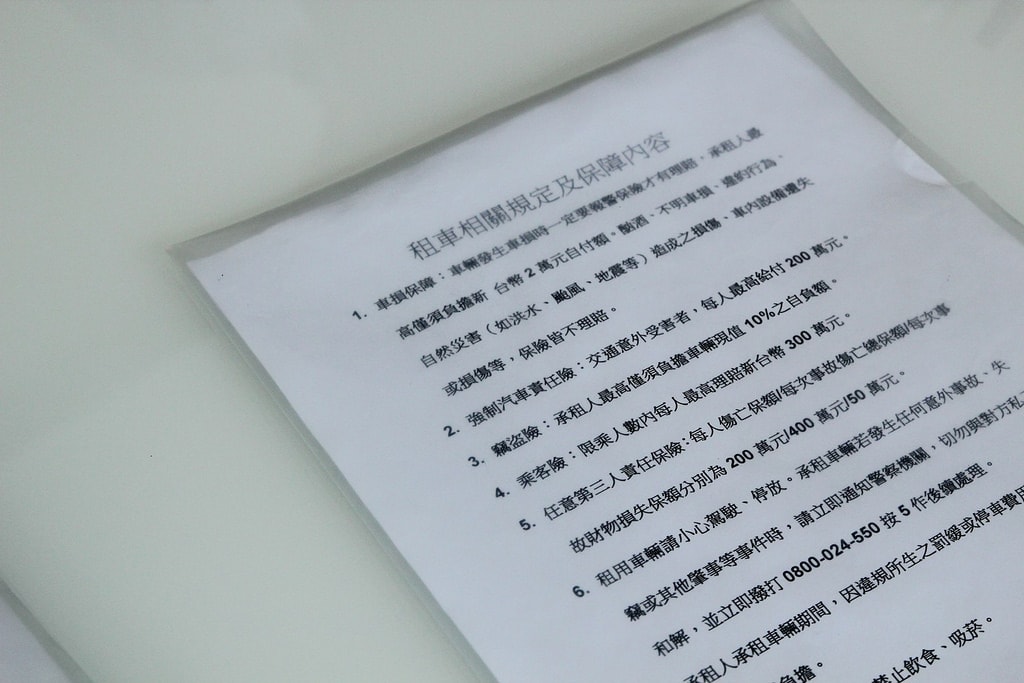 租車相關規定及保障內容
1. 車損保障：車輛發生車損時一定要報警保險才有理賠，承租人最
高僅須負擔新 台幣 2 萬元自付額。酗酒、不明車損、違約行為、
自然災害（如洪水、颱風、地震等）造成之損傷、車內設備遺失
或損傷等，保險皆不理賠。
2. 強制汽車責任險：交通意外受害者，每人最高給付 200 萬元。
3. 竊盜險：承租人最高僅須負擔車輛現值 10%之自負額。
4. 乘客險：限乘人數內每人最高理賠新台幣 300 萬元。
5. 任意第三人責任保險：每人傷亡保額/每次事故傷亡總保額/每次事
故財物損失保額分別為 200 萬元/400 萬元/50 萬元。
6. 租用車輛請小心駕駛、停放。承租車輛若發生任何意外事故、失
竊或其他肇事等事件時，請立即通知警察機關，切勿與對方私
和解，並立即撥打 0800-024-550 按 5 作後續處理。
承租人承租車輛期間，因違規所生之罰鍰或停車費用
負擔。
禁止飲食、吸菸。